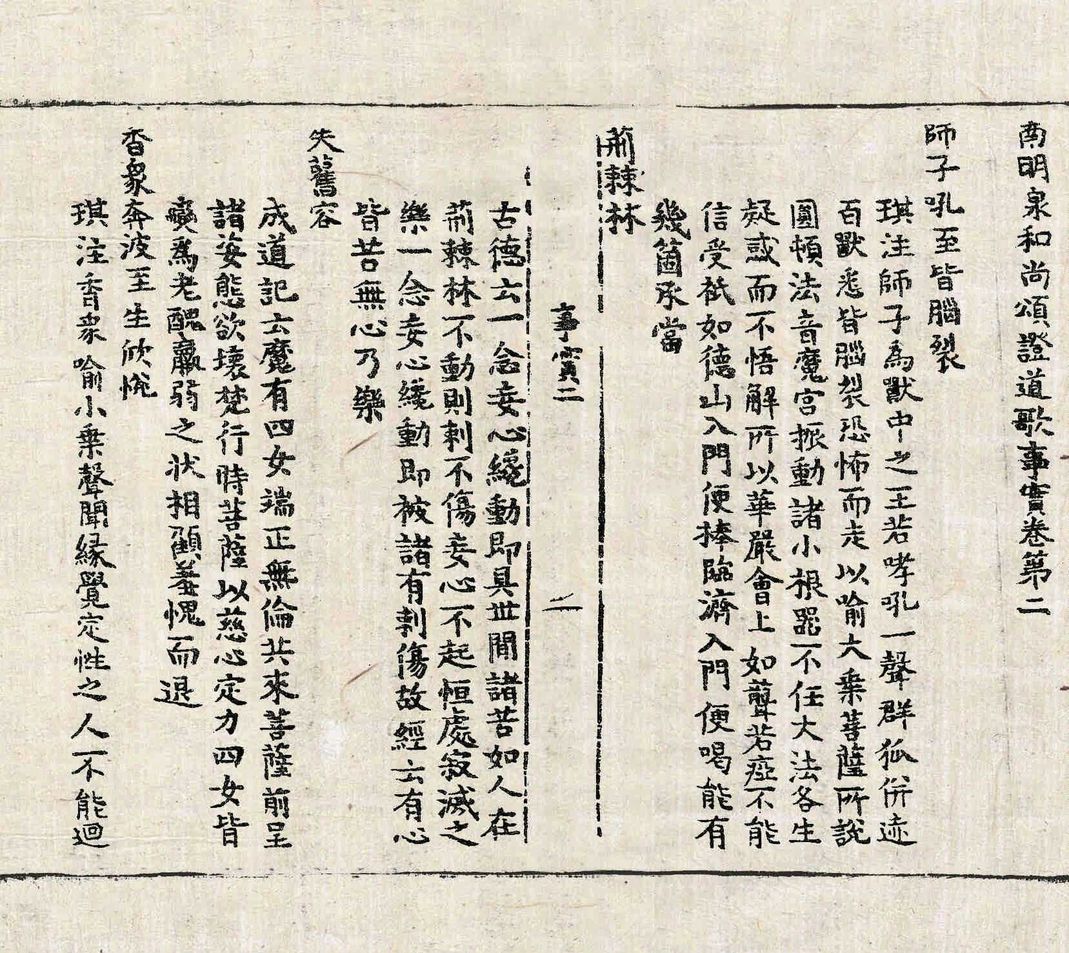 南明泉和尚頌證道歌事實卷第二
師子吼至皆腦裂
琪注師子為獸中之王若哮吼一聲群狐併迹
百獸悉皆腦裂恐怖而走以喻大乗菩薩所說
圓頓法音魔宮振動諸小根器不任大法各生
疑惑而不悟解所以華嚴會上如聾若瘂不能
信受祇如德山入門便棒臨濟入門便喝能有
幾箇承當
荊棘林
事實二
二
古德云一念妄心纔動即具丗間諸苦如人在
荊棘林不動則刺不傷妄心不起恒處寂滅之
樂一念妄心纔動即被諸有刺傷故經云有心
皆苦無心乃樂
失舊容
成道記云魔有四女端正無倫共來菩薩前呈
諸姿態欲壞梵行時菩薩以慈心定力四女皆
變為老醜羸弱之狀相顧羞愧而退
香象奔波至生欣悅
琪注香象喻小乗聲聞緣覺定性之人不能迴